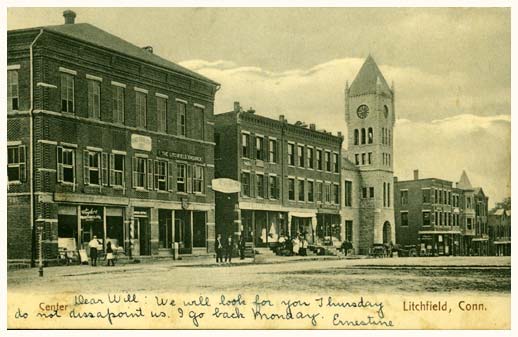 THE LITCHFIELD ENQUIRER
Center
Litchfield, Conn.
Dear Will: We will look for you Thursday
do not dissapoint us. I go back Monday.
Ernestine